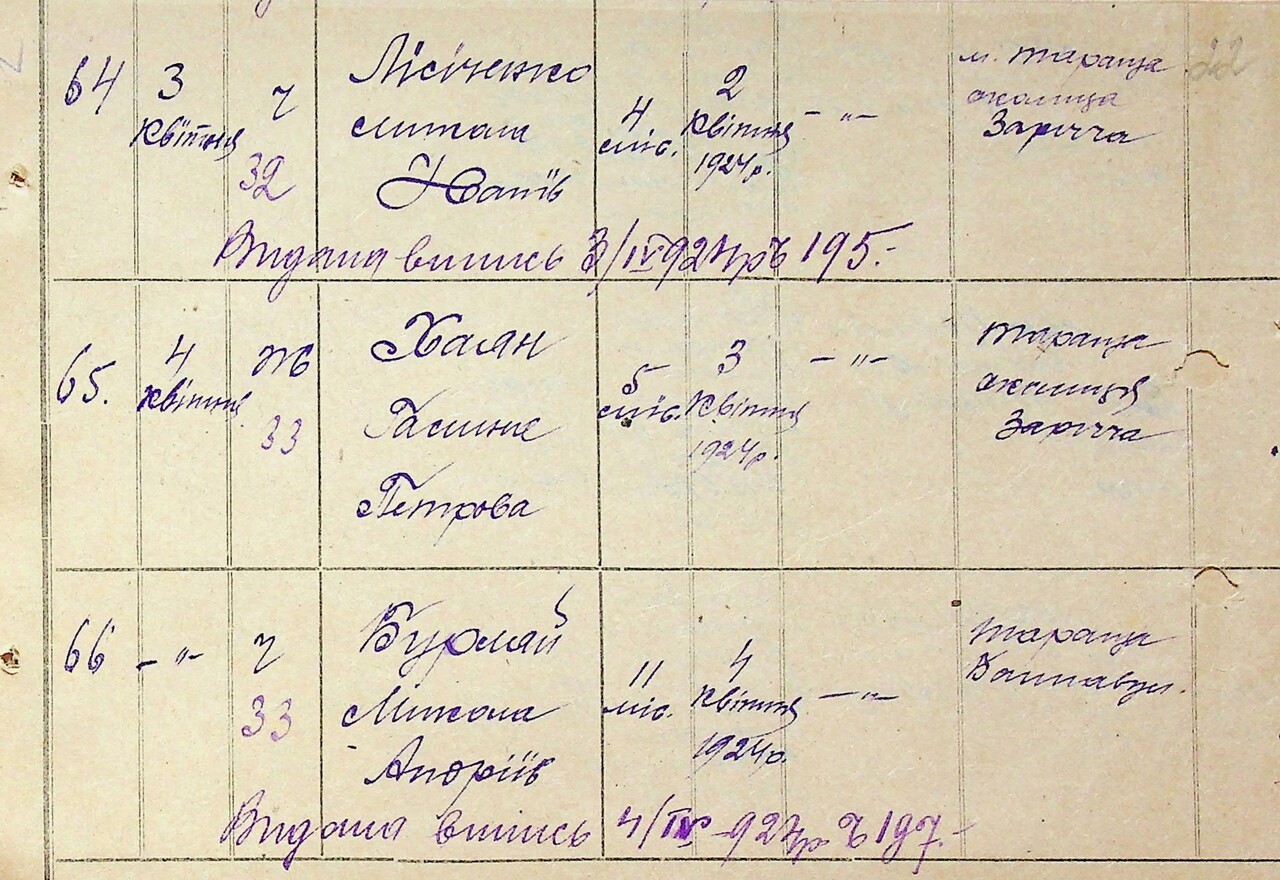 64 3 Квітня ч 32
Лісіченко
Микола
4 міс.
2 Квітня 1924р.
— „ —
м. Тараща
околиця
Заріччя
22
Видана випись 3/IV 924р № 195.-
65. 4 Квітня Ж 33
Халян
Петрова
5 міс.
3 Квітня 1924р.
— „ —
Тараща
околиця
Заріччя
66 — „ — ч 33
Бурлай
Микола
Андріїв
11 міс.
4 Квітня 1924р.
— „ —
Тараща
Видана випись 4/IV 924р № 197.-